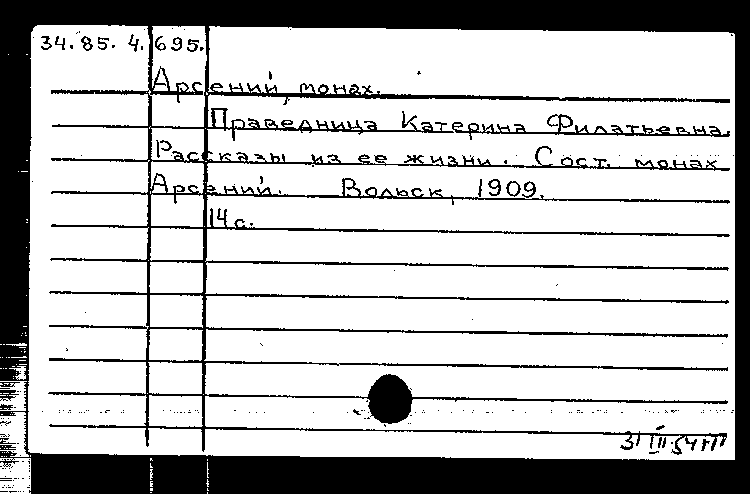 34.85.4.695.
Арсений, монах.
Праведница Катерина Филатьевна.
Рассказы из ее жизни. Сост. монах
Арсений. Вольск, 1909.
14 с.
31 III 54